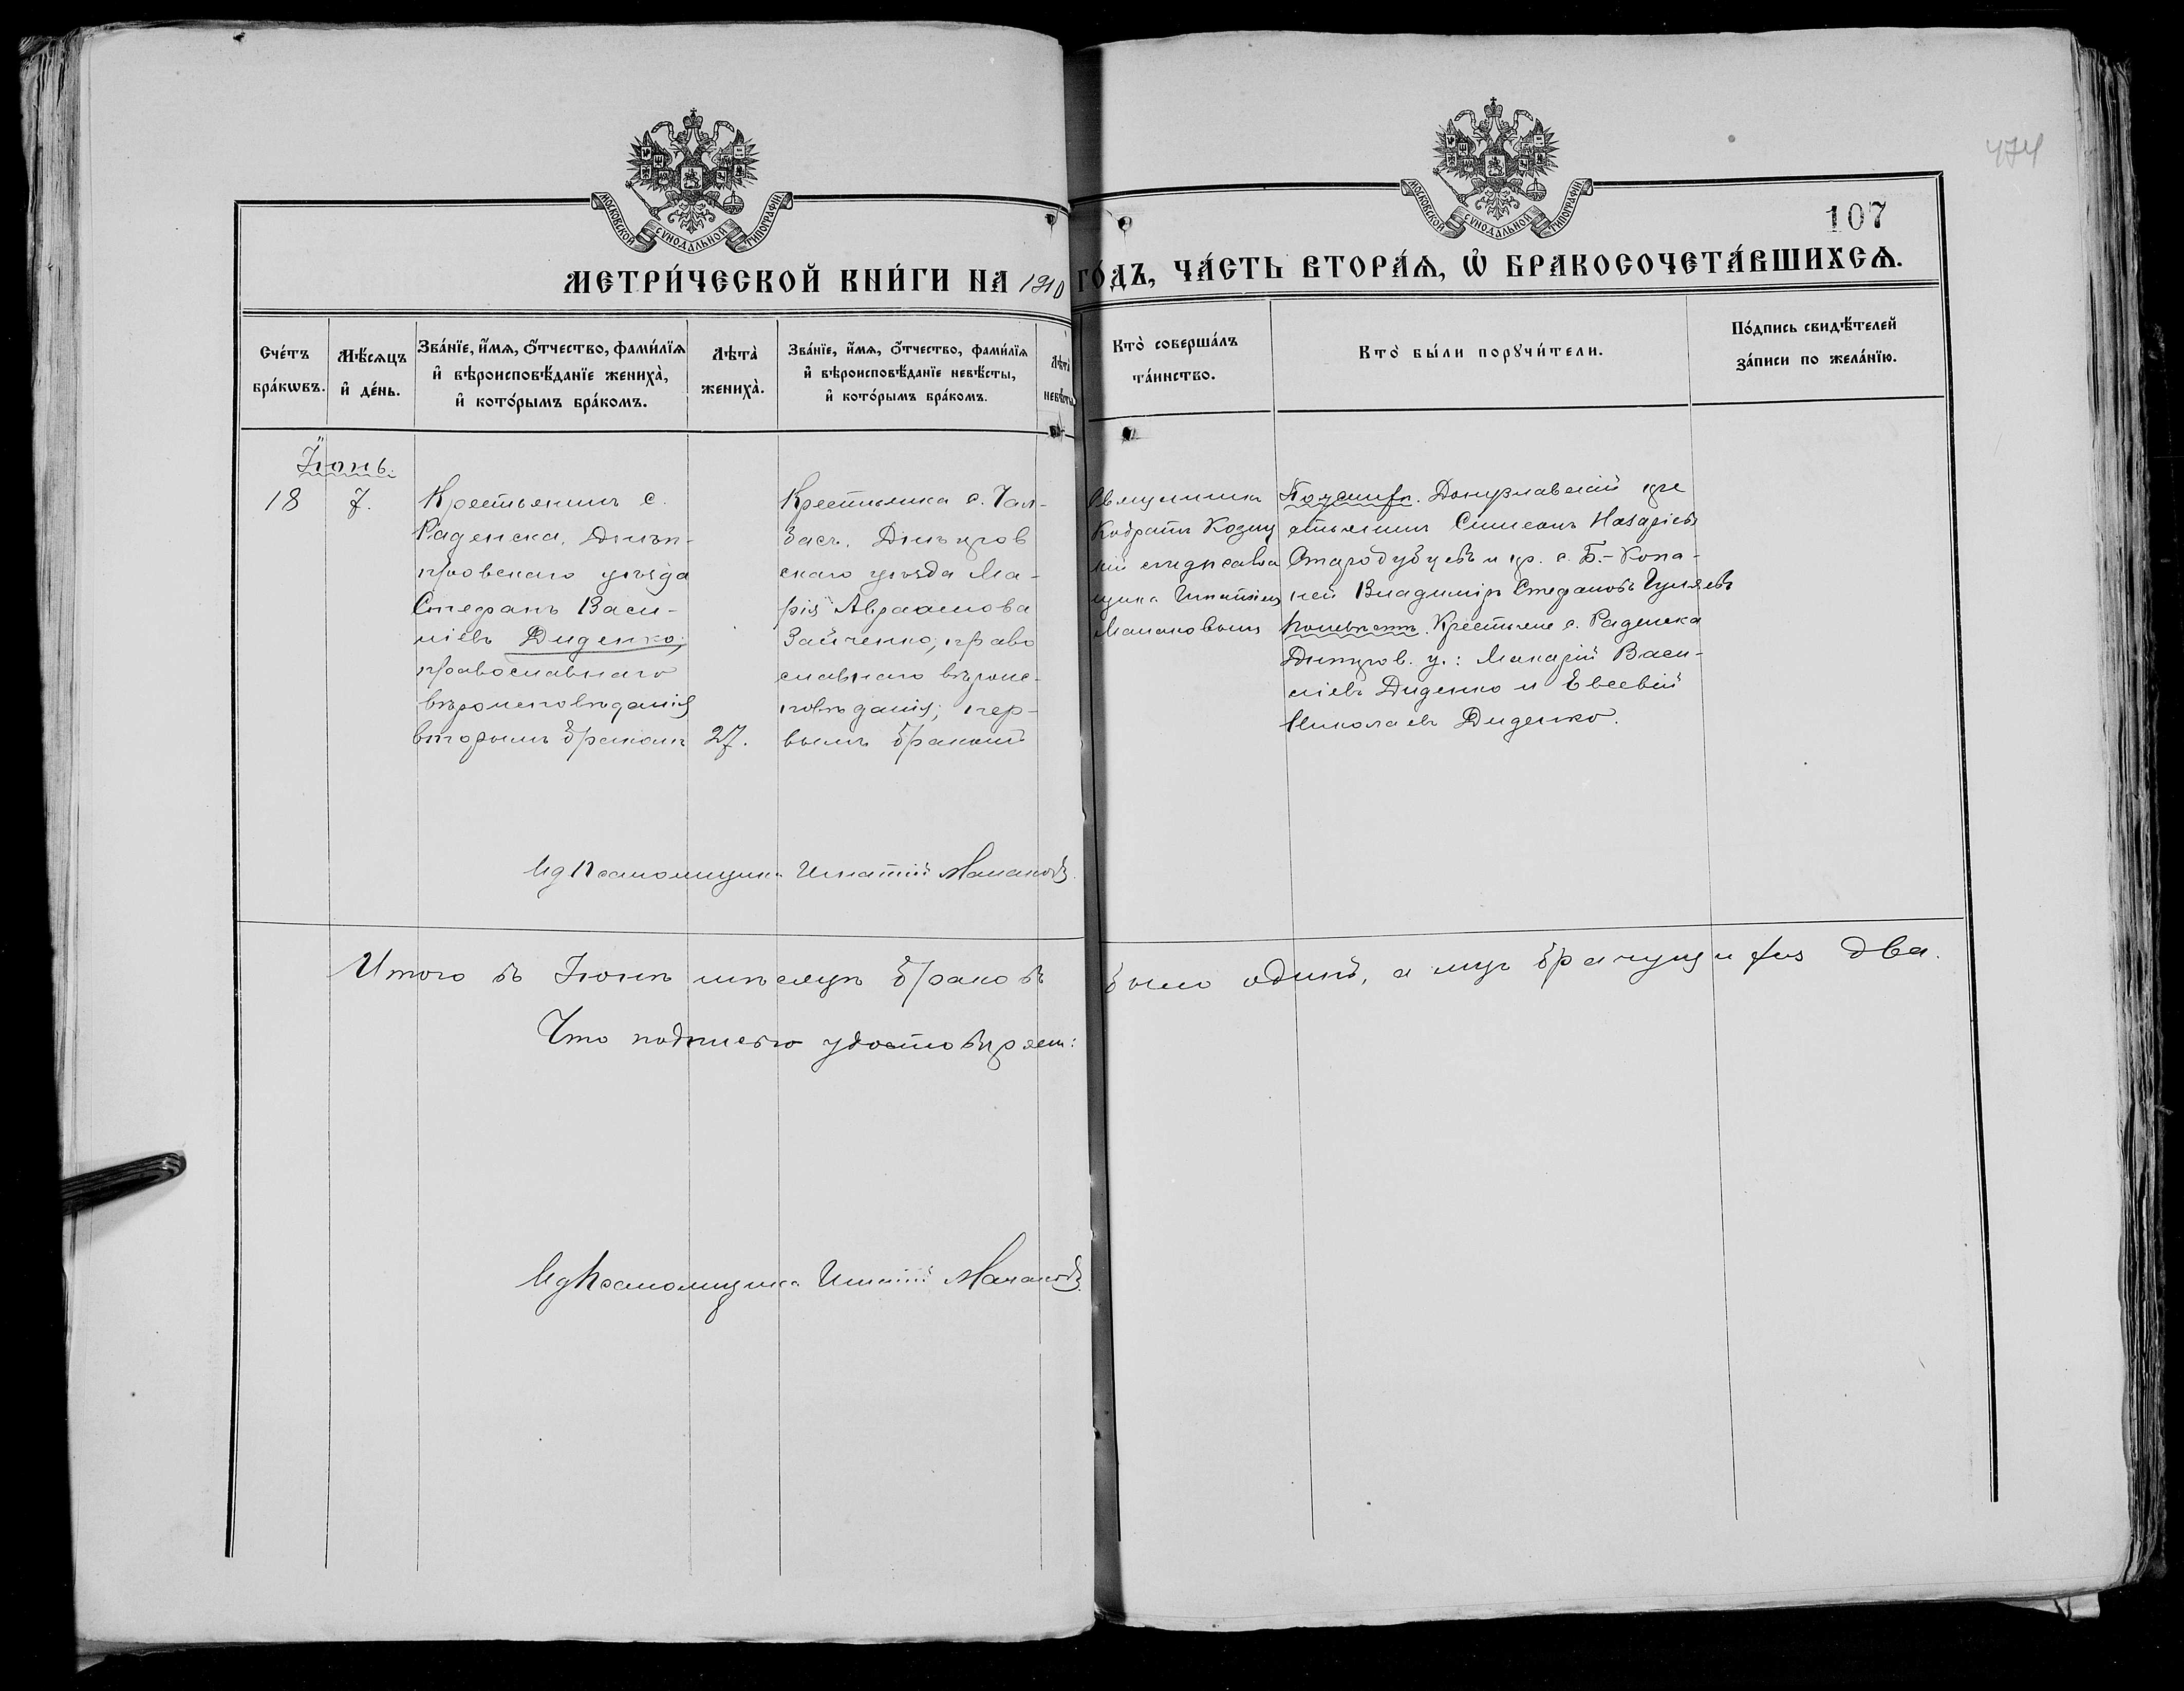 474
107
МОСКОВСКОЙ СѴНОДАЛЬНОЙ ТИПОГРАФІИ
МОСКОВСКОЙ СѴНОДАЛЬНОЙ ТИПОГРАФІИ
МЕТРИ́ЧЕСКОЙ КНИ́ГИ НА 1910 ГО́ДЪ, ЧА́СТЬ ВТОРА́Я, Ѡ҆ БРАКОСОЧЕТА́ВШИХСѦ.
Сче́тъ
бра́кѡвъ.
Мѣ́сѧцъ
и҆ де́нь.
Зва́нїе, и҆́мѧ, о҆́тчество, фами́лїѧ
и҆ вѣроисповѣ́данїе жениха̀,
и҆ кото́рымъ бра́комъ.
Лѣта̀
жениха̀.
Зва́нїе, и҆́мѧ, о҆́тчество, фами́лїѧ
и҆ вѣроисповѣ́данїе невѣ́сты,
и҆ кото́рымъ бра́комъ.
Лѣта̀
невѣ́сты.
Кто̀ соверша́лъ
та́инство.
Кто̀ бы́ли порꙋчи́тели.
По́дпись свидѣ́телей
за́писи по жела́нїю.
Іюнь.
18
7.
Крестьянинъ с.
Раденска, Днѣп-
провскаго уѣзда
Стефанъ Васи-
ліевъ Диденко;
православнаго
вѣроисповѣданія
вторымъ бракомъ
27.
Крестьянка с. Чал-
бась, Днѣпров
скаго уѣзда Ма-
рія Авраамова
Зайченко, право
славнаго вѣроис-
повѣданія; пер-
вымъ бракомъ
Священникъ
Кодратъ
псаломщика Игнатіем
Манаковымъ
По жениху. Донузлавскій кре
стьянинъ Симеонъ Назаріевъ
Стародубцевъ и кр. с. Б.-Копа-
ней Владиміръ Стефановъ Гуляевъ
по невѣстѣ. Крестьяне с. Раденска
Днѣпров. у.: Макарій Васи-
ліевъ Диденко и Евсевій
Николаевъ Диденко.
Ид Псаломщика Игнатій Манаковъ.
Итого въ Іюнѣ мѣсяцѣ браковъ было одинъ, а лицъ брачущихся два.
Что подписью удостовѣряемъ:
Ид Псаломщика Игнатій Манаковъ.